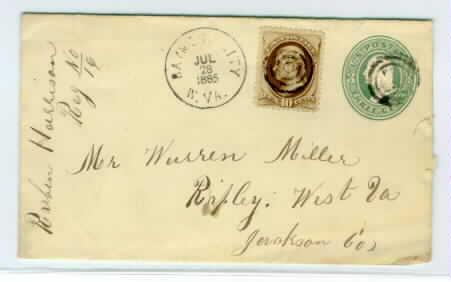 Reuben Harrison
Reg No
19
JUL
28
1885
W. VA.
10
U.S. POSTAGE
THREE CENTS
Mr Warren Miller
Ripley. West Va
Jackson Co,